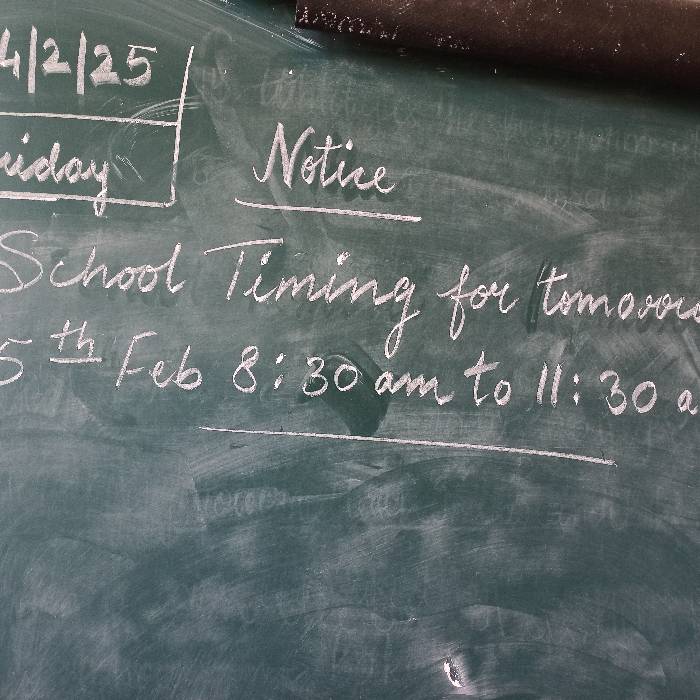 4/2/25
riday
Notice
School Timing for tomorro
5th Feb 8:30 am to 11:30 a